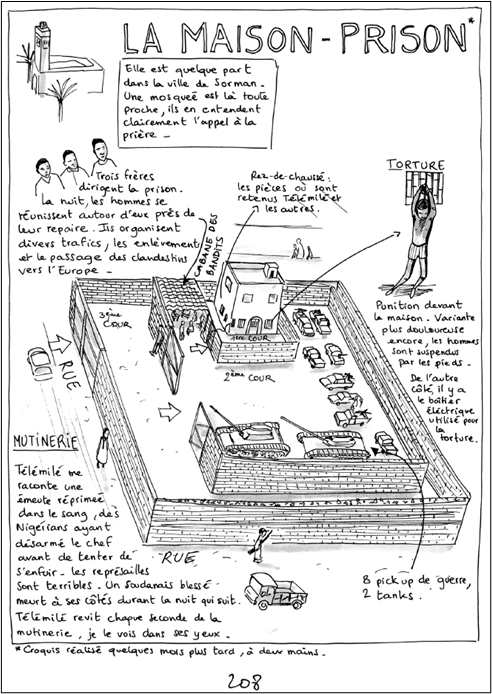 LA MAISON-PRISON*
Elle est quelque part
dans la ville de Sorman -
Une mosquée est là toute
proche, ils en entendent
clairement l'appel à la
prière -
Trois frères
dirigent la prison.
La nuit, les hommes se
réunissent autour d'eux près de
leur repaire. Ils organisent
divers trafics, les enlèvements
et le passage des clandestins
vers l'Europe -
Rez-de-chaussé:
les pièces où sont
retenus Télémilé et
les autres.
CABANE DES
BANDITS
TORTURE
Punition devant
la maison. Variante
plus douloureuse
encore, les hommes
sont suspendus
par les pieds -
De l'autre
côté, il y a
le boîtier
électrique
utilisé pour
la
torture.
3ème
COUR
1ère COUR
2ème COUR
RUE
MUTINERIE
Télémilé me
raconte une
émeute réprimée
dans le sang, des
Nigérians ayant
désarmé le chef
avant de tenter de
s'enfuir - les représailles
sont terribles - Un soudanais blessé
meurt à ses côtés durant la nuit qui suit.
Télémilé revit chaque seconde de la
mutinerie, je le vois dans ses yeux -
RUE
8 pick up de guerre,
2 tanks.
*Croquis réalisé quelques mois plus tard, à deux mains -
208